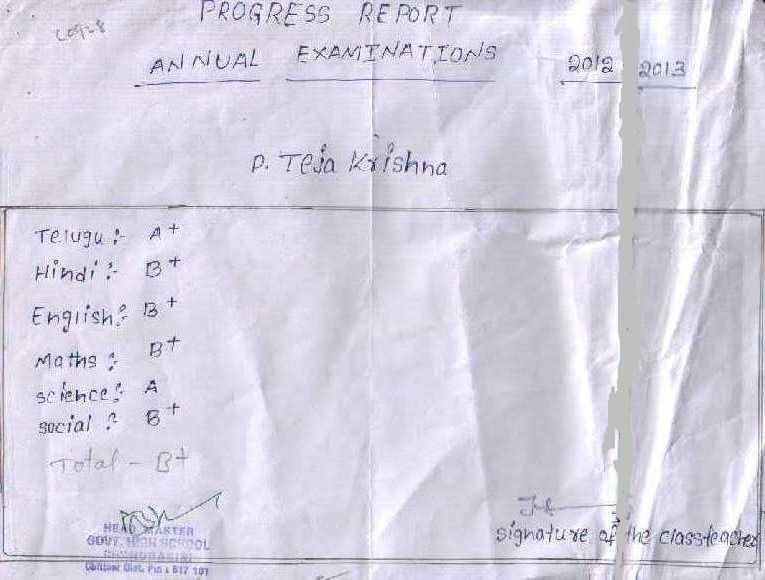 PROGRESS REPORT
ANNUAL EXAMINATIONS 2012 2013
P. Teja Krishna
Telugu :- A+
Hindi :- B+
English :- B+
Maths : B+
science :- A
social : B+
Total - B+
HEAD MASTER
GOVT. HIGH SCHOOL
signature of the classteacher
Chittoor Dist. Pin : 517 101